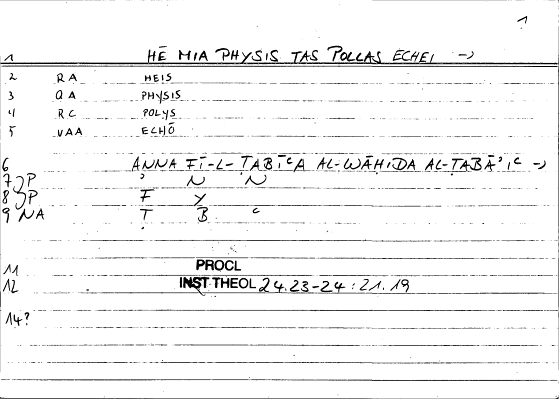 1
1 HĒ MIA PHYSIS TAS POLLAS ECHEI →
2 RA HEIS
3 QA PHYSIS
4 RC POLYS
5 VAA ECHŌ
6 ANNA FĪ-L-ṬABĪʿA AL-WĀḤIDA AL-ṬABĀʾIʿ →
7 P ʾ N N
8 P F Y
9 NA Ṭ B ʿ
11 PROCL
12 INST THEOL 24.23-24 : 21.19
14?